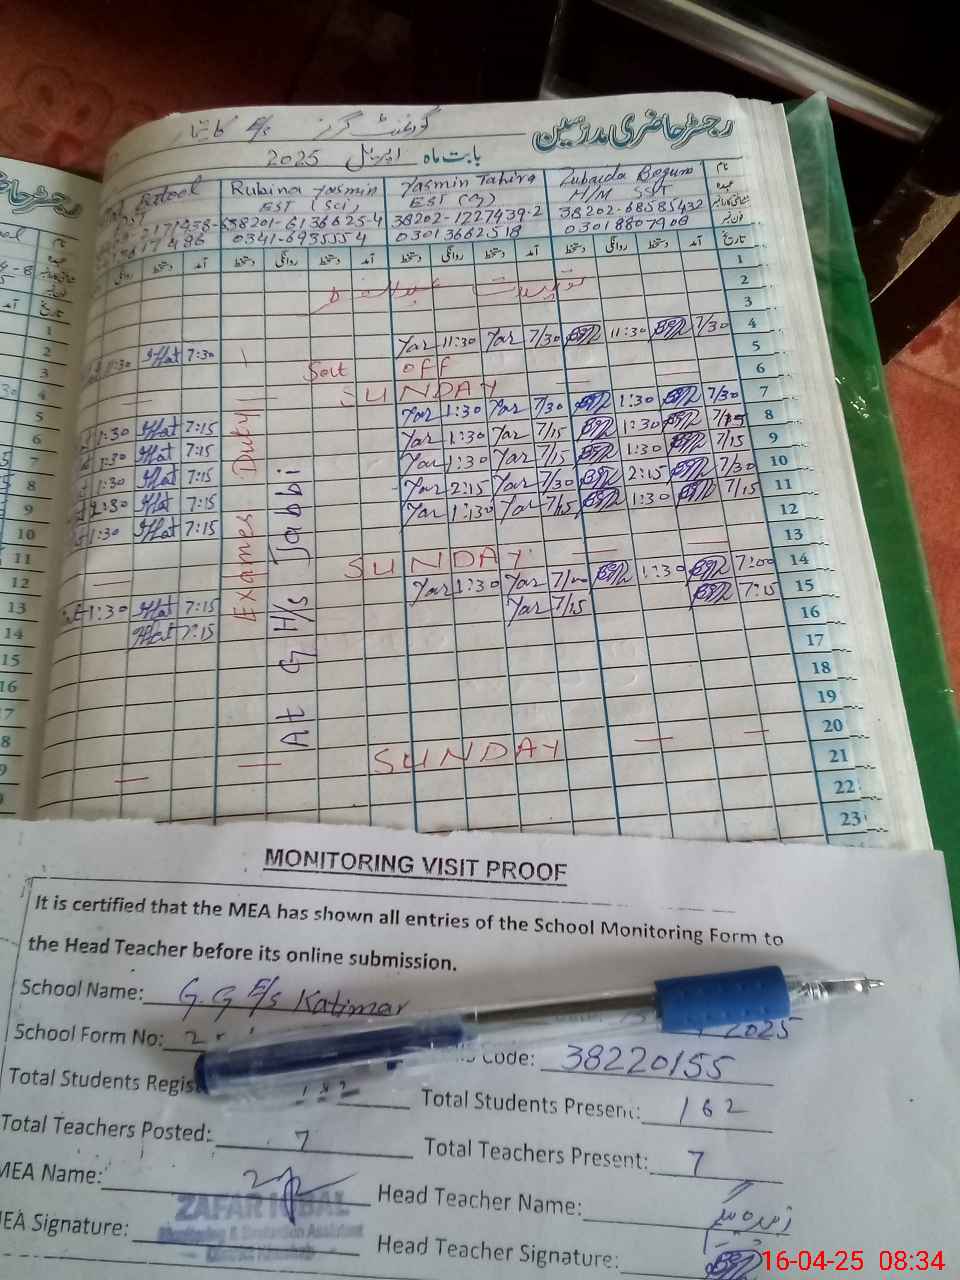 رجسٹر حاضری مدرسین
گورنمنٹ گرلز E/S کاٹیمار
بابت ماہ اپریل 2025
Batool
Rubina Yasmin
EST (Sci)
38201-6136625-4
0341-6935554
Yasmin Tahira
EST (G)
38202-1227439-2
03013662518
Zubaida Begum
H/M SST
38202-68585432
03018807906
نام
عہدہ
تاریخ
آمد دستخط روانگی دستخط آمد دستخط روانگی دستخط آمد دستخط روانگی دستخط
1
2
3
4 7/30 11:30 7/30 Yar 11:30 Yar 7:30 Ifat 11:30
5 OFF Sat
6 SUNDAY
7 7/30 1:30 7/30 Yar 1:30 Yar 7:15 Ifat 1:30
8 7/15 1:30 7/15 Yar 1:30 Yar 7:15 Ifat 1:30
9 7/15 1:30 7/15 Yar 1:30 Yar 7:15 Ifat 1:30
10 7/30 2:15 7/30 Yar 2:15 Yar 7:15 Ifat
11 7/15 1:30 7/15 Yar 1:30 Yar 7:15 Ifat 1:30
12
13 SUNDAY
14 7:00 1:30 7/00 Yar 1:30 Yar 7:15 Ifat 1:30
15 7:15 7/15 Yar 7:15 Ifat
16
17
18
19
20 SUNDAY
21
22
23
Exames Duty
At G H/S Jabbi
MONITORING VISIT PROOF
It is certified that the MEA has shown all entries of the School Monitoring Form to
the Head Teacher before its online submission.
School Name: G.G E/S Katimar
School Form No: 2025
Code: 38220155
Total Students Regis 182 Total Students Present: 162
Total Teachers Posted: 7 Total Teachers Present: 7
MEA Name: Head Teacher Name:
ZAFAR IQBAL
Monitoring & Evaluation Assistant
District Khushab
EA Signature: Head Teacher Signature:
16-04-25 08:34